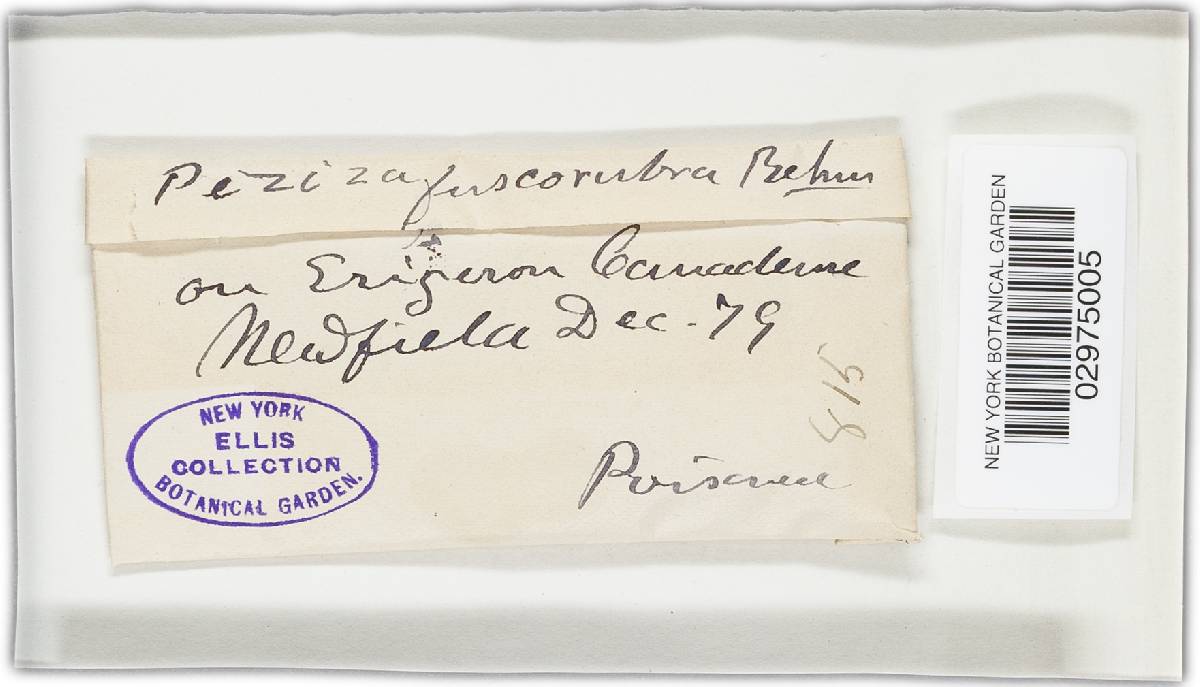 Peziza fuscorubra Rehm
on Erigeron Canadense
Newfield Dec. 79
815
Poisoned
NEW YORK
ELLIS
COLLECTION
BOTANICAL GARDEN.
NEW YORK BOTANICAL GARDEN
02975005